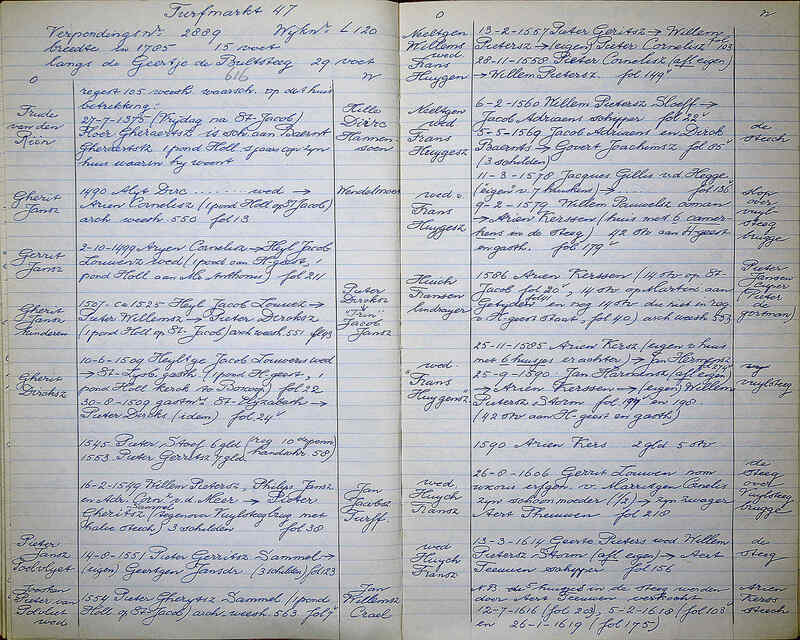 Turfmarkt 47
Verpondingsnr. 2889 Wijknr. L 120
breedte in 1785 15 voet
langs de Geertje de Bultsteeg 29 voet
O 616 N
regest 105 weesh. waarsch. op dit huis
betrekking:
27-7-1375 (Vrijdag na St-Jacob)
Heer Gheraerts is sch. aan Baernt
Gheraertsz 1 pond Holl 's jaars op zijn
huis waarin hij woont
Frude
van den
Rien
Hille
Dirrc
Hannen-
soen
Gherit
Jansz
1490 Alyt Dirc ........ wed →
Arien Cornelisz (1 pond Holl op St Jacob)
arch weesh. 550 fol 13
Wendelmoer
Gerrit
Jansz
2-10-1499 Aryen Cornelisz → Heyl Jacob
Louwerz wed (1 pond aan H. geest, 1
pond Holl aan Mr Anthonis) fol 211
Gherit
Jansz
kinderen
1507- ca 1525 Heyl Jacob Louwez →
Pieter Willemsz → Pieter Dircksz
(1 pond Holl op St-Jacob) arch weesh. 551 f 43
Pieter
Dircksz
"Prin"
Jacob
Jansz
Gherit
Dircksz
10-6-1509 Heyltge Jacob Louwers wed
→ St-Jacob gasth. (1 pond H. geest, 1
pond Holl Kerck te Boscop) fol 22
30-8-1509 gastmrs. St-Elyzabeth →
Pieter Dircks (idem) fol 24v
1545 Pieter Stoef 6 gld (reg 10e penn
1553 Pieter Gerritsz 7 gld handschr 58)
16-2-1549 Willem Pietersz, Philps Jansz
en Adr. Corn. v d Meer → Pieter
Gheritsz Sammel (tegenover Vuylstegbrug met
halve steech) 3 schilden fol 38
Jan
Jacobsz
Turff.
Pieter
Jansz
14-8-1551 Pieter Gerritsz Sammel →
(eigen) Geertgen Jansdr. (3 schilden) fol 123
Pieter van
wed
1554 Pieter Gherytsz Sammel (1 pond
Holl op St-Jacob) arch. weesh. 563 fol
Jan
Willemsz
Crael
O N
Nieltgen
Willems
wed
Frans
Huygen
13-2-1557 Pieter Gerritsz → Willem
Pietersz → (eigen) Pieter Cornelisz fol 103
28-11-1558 Pieter Cornelisz (afl eigen)
→ Willem Pietersz. fol 149v
Nieltgen
wed
Frans
Huygesz
6-2-1560 Willem Pietersz Sloeff →
Jacob Adriaens schipper fol 22v
5-5-1569 Jacob Adriaens en Dirck
Baerents → Govert Joachimsz fol 85v
(3 schilden)
de
steech
wed v.
Frans
Huygesz
11-3-1578 Jacques Gilles v d Hegge
(eigen v 7 huiskens) → ........ fol 136v
9-2-1579 Willem Pauwelsz oman
→ Arien Kerssen (huis met 6 camer-
kens en de steeg) 42 stv aan H. geest
en gasth. fol 179v
stop
over
vuyl-
steeg
brugge
Huich
Fransen
lindrayer
1586 Arien Kerssen (14 stv op St
Jacob fol 20v, 14 stv op Marten aan
Getyden fol 4v en nog 14 stv die niet in reg
v H. geest staat, fol 40) arch weesh 553
Pieter
Jansen
Caeper
(Pieter
de
gortman)
wed.
"Frans
Huygensz"
25-11-1585 Arien Kersz (eigen v huis
met 6 huisjes er achter) → Jan Hermensz fol 274v
25-9-1590 Jan Harmensz (afl eigen
→ Arien Kerssen → (eigen) Willem
Pietersz Storm fol 197 en 198
(42 stv aan H. geest en gasth)
vuylsteeg
1590 Arien Kers 2 gld 5 stv
wed
Huych
Fransz
26-8-1606 Gerrit Louwen nom
uxoris erfgen. v. Marritgen Canelis
zijn schoonmoeder (1/2) → zijn zwager
Aert Theeuwen fol 218
de
steeg
over
Vuylsteeg
brugge
wed
Huych
Fransz
13-3-1614 Geerte Pieters wed Willem
Pietersz Storm (afl eigen) → Aert
Teeuwen schipper fol 156
de
steeg
N.B. de 5 huisjes in de steeg worden
door Aert Teeuwen verkocht
12-7-1616 (fol 203), 5-2-1618 (fol 103v
en 26-1-1619 (fol 175)
Arien
Kers
steech